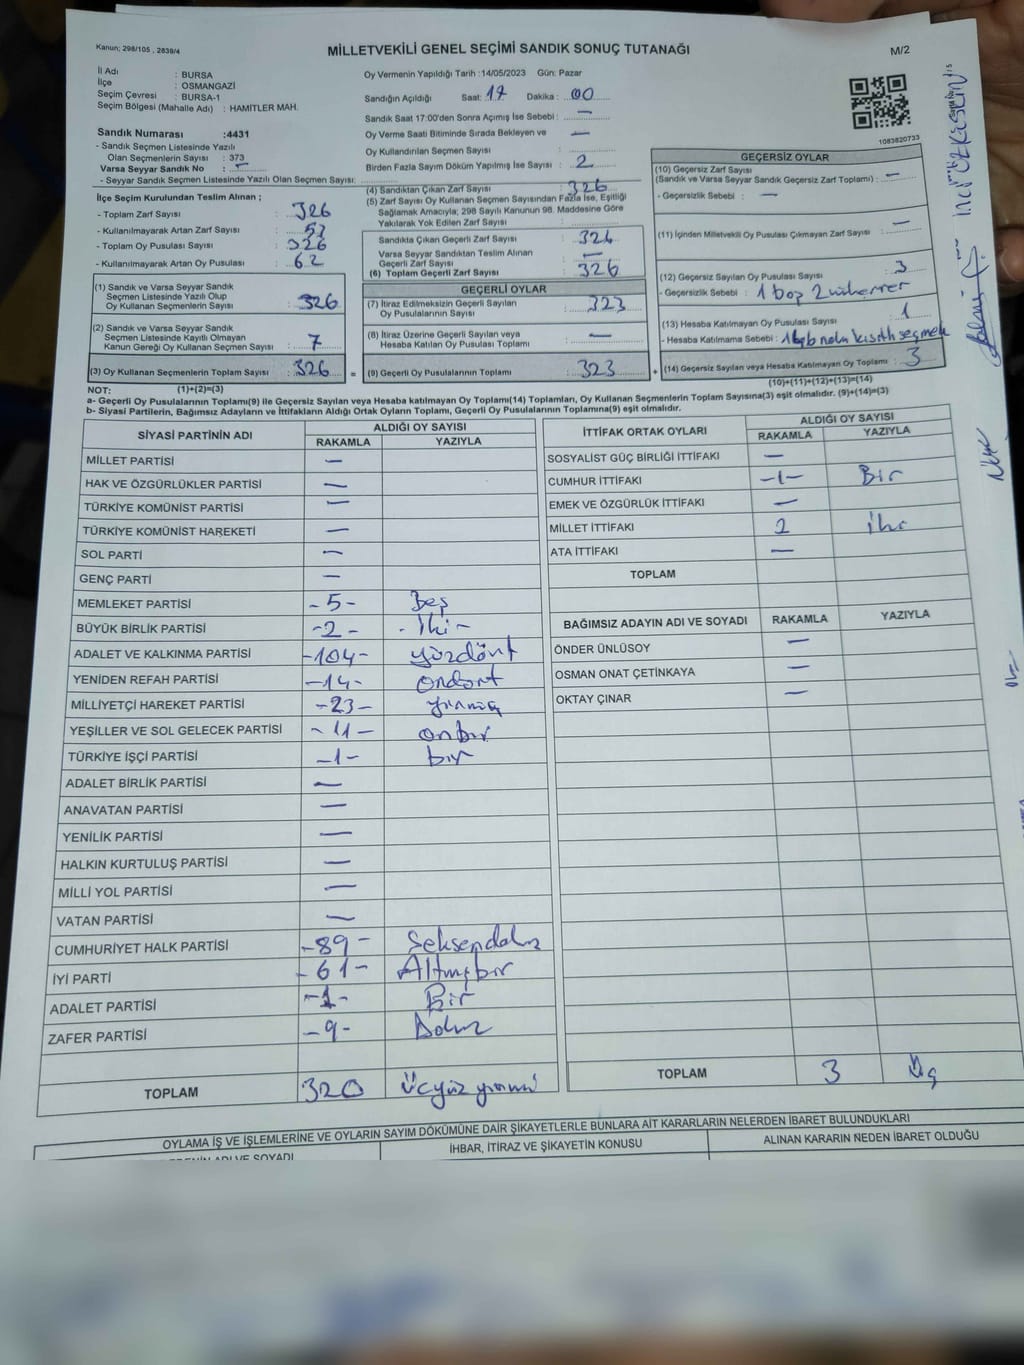 Kanun; 298/105 , 2839/4
MİLLETVEKİLİ GENEL SEÇİMİ SANDIK SONUÇ TUTANAĞI
M/2
İl Adı : BURSA
İlçe : OSMANGAZİ
Seçim Çevresi : BURSA-1
Seçim Bölgesi (Mahalle Adı) : HAMİTLER MAH.
Sandık Numarası :4431
- Sandık Seçmen Listesinde Yazılı
Olan Seçmenlerin Sayısı : 373
Varsa Seyyar Sandık No : -
- Seyyar Sandık Seçmen Listesinde Yazılı Olan Seçmen Sayısı:
Oy Vermenin Yapıldığı Tarih :14/05/2023 Gün: Pazar
Sandığın Açıldığı Saat: 17 Dakika : 00
Sandık Saat 17:00'den Sonra Açımış İse Sebebi : —
Oy Verme Saati Bitiminde Sırada Bekleyen ve —
Oy Kullandırılan Seçmen Sayısı :
Birden Fazla Sayım Döküm Yapılmış İse Sayısı : 2
1083820733
İlçe Seçim Kurulundan Teslim Alınan ;
- Toplam Zarf Sayısı : 326
- Kullanılmayarak Artan Zarf Sayısı : 57
- Toplam Oy Pusulası Sayısı : 326
- Kullanılmayarak Artan Oy Pusulası : 62
(1) Sandık ve Varsa Seyyar Sandık
Seçmen Listesinde Yazılı Olup
Oy Kullanan Seçmenlerin Sayısı : 326
(2) Sandık ve Varsa Seyyar Sandık
Seçmen Listesinde Kayıtlı Olmayan
Kanun Gereği Oy Kullanan Seçmen Sayısı : 7
(3) Oy Kullanan Seçmenlerin Toplam Sayısı : 326 =
(4) Sandıktan Çıkan Zarf Sayısı : 326
(5) Zarf Sayısı Oy Kullanan Seçmen Sayısından Fazla İse, Eşitliği
Sağlamak Amacıyla; 298 Sayılı Kanunun 98. Maddesine Göre
Yakılarak Yok Edilen Zarf Sayısı :
Sandıkta Çıkan Geçerli Zarf Sayısı : 326
Varsa Seyyar Sandıktan Teslim Alınan
Geçerli Zarf Sayısı : —
(6) Toplam Geçerli Zarf Sayısı : 326
GEÇERLİ OYLAR
(7) İtiraz Edilmeksizin Geçerli Sayılan
Oy Pusulalarının Sayısı : 323
(8) İtiraz Üzerine Geçerli Sayılan veya
Hesaba Katılan Oy Pusulası Toplamı : —
(9) Geçerli Oy Pusulalarının Toplamı : 323 +
GEÇERSİZ OYLAR
(10) Geçersiz Zarf Sayısı
(Sandık ve Varsa Seyyar Sandık Geçersiz Zarf Toplamı) : —
- Geçersizlik Sebebi : —
(11) İçinden Milletvekili Oy Pusulası Çıkmayan Zarf Sayısı : —
(12) Geçersiz Sayılan Oy Pusulası Sayısı : 3
- Geçersizlik Sebebi : 1 boş 2
(13) Hesaba Katılmayan Oy Pusulası Sayısı : 1
- Hesaba Katılmama Sebebi : kısıtlı seçmen
(14) Geçersiz Sayılan veya Hesaba Katılmayan Oy Toplamı : 3
NOT: (1)+(2)=(3)
(10)+(11)+(12)+(13)=(14)
a- Geçerli Oy Pusulalarının Toplamı(9) ile Geçersiz Sayılan veya Hesaba katılmayan Oy Toplamı(14) Toplamları, Oy Kullanan Seçmenlerin Toplam Sayısına(3) eşit olmalıdır. (9)+(14)=(3)
b- Siyasi Partilerin, Bağımsız Adayların ve İttifakların Aldığı Ortak Oyların Toplamı, Geçerli Oy Pusulalarının Toplamına(9) eşit olmalıdır.
SİYASİ PARTİNİN ADI ALDIĞI OY SAYISI
RAKAMLA YAZIYLA
MİLLET PARTİSİ —
HAK VE ÖZGÜRLÜKLER PARTİSİ —
TÜRKİYE KOMÜNİST PARTİSİ —
TÜRKİYE KOMÜNİST HAREKETİ —
SOL PARTİ —
GENÇ PARTİ —
MEMLEKET PARTİSİ -5- Beş
BÜYÜK BİRLİK PARTİSİ -2- İki
ADALET VE KALKINMA PARTİSİ -104- yüzdört
YENİDEN REFAH PARTİSİ -14- Ondört
MİLLİYETÇİ HAREKET PARTİSİ -23-
YEŞİLLER VE SOL GELECEK PARTİSİ -11- onbir
TÜRKİYE İŞÇİ PARTİSİ -1- bir
ADALET BİRLİK PARTİSİ —
ANAVATAN PARTİSİ —
YENİLİK PARTİSİ —
HALKIN KURTULUŞ PARTİSİ —
MİLLİ YOL PARTİSİ —
VATAN PARTİSİ —
CUMHURİYET HALK PARTİSİ -89- Seksendokuz
İYİ PARTİ -61- Altmışbir
ADALET PARTİSİ -1- Bir
ZAFER PARTİSİ -9- Dokuz
TOPLAM 320 Üçyüz yirmi
İTTİFAK ORTAK OYLARI ALDIĞI OY SAYISI
RAKAMLA YAZIYLA
SOSYALİST GÜÇ BİRLİĞİ İTTİFAKI —
CUMHUR İTTİFAKI -1- Bir
EMEK VE ÖZGÜRLÜK İTTİFAKI —
MİLLET İTTİFAKI 2 İki
ATA İTTİFAKI —
TOPLAM
BAĞIMSIZ ADAYIN ADI VE SOYADI RAKAMLA YAZIYLA
ÖNDER ÜNLÜSOY —
OSMAN ONAT ÇETİNKAYA —
OKTAY ÇINAR —
TOPLAM 3 Üç
OYLAMA İŞ VE İŞLEMLERİNE VE OYLARIN SAYIM DÖKÜMÜNE DAİR ŞİKAYETLERLE BUNLARA AİT KARARLARIN NELERDEN İBARET BULUNDUKLARI
ADI VE SOYADI İHBAR, İTİRAZ VE ŞİKAYETİN KONUSU ALINAN KARARIN NEDEN İBARET OLDUĞU